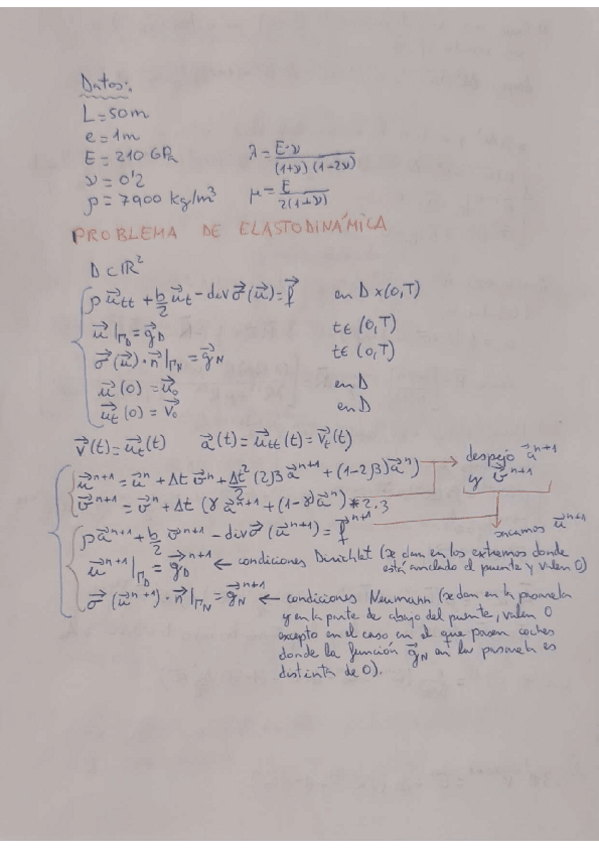 Datos:
L=50m
e=1m
E=210 GPa λ = E·ν / (1+ν)(1-2ν)
ν=0'2 μ = E / 2(1+ν)
ρ=7900 kg/m³
PROBLEMA DE ELASTODINÁMICA
D⊂ℝ²
ρ u⃗tt + b/2 u⃗t - div σ⃗(u⃗) = f⃗ en D×(0,T)
u⃗|Γ_D = g⃗_D t∈(0,T)
σ⃗(u⃗)·n⃗|Γ_N = g⃗_N t∈(0,T)
u⃗(0) = u⃗₀ en D
u⃗t(0) = v⃗₀ en D
v⃗(t)=u⃗t(t) a⃗(t)=u⃗tt(t)=v⃗t(t)
despejo a⃗ⁿ⁺¹
y v⃗ⁿ⁺¹
u⃗ⁿ⁺¹ = u⃗ⁿ + Δt v⃗ⁿ + Δt²/2 (2β a⃗ⁿ⁺¹ + (1-2β) a⃗ⁿ)
v⃗ⁿ⁺¹ = v⃗ⁿ + Δt (γ a⃗ⁿ⁺¹ + (1-γ) a⃗ⁿ) *2.3
ρ a⃗ⁿ⁺¹ + b/2 v⃗ⁿ⁺¹ - div σ⃗(u⃗ⁿ⁺¹) = f⃗ⁿ⁺¹ sacamos u⃗ⁿ⁺¹
u⃗ⁿ⁺¹|Γ_D = g⃗_Dⁿ⁺¹ ← condiciones Dirichlet (se dan en los extremos donde
está anclado el puente y valen 0)
σ⃗(u⃗ⁿ⁺¹)·n⃗|Γ_N = g⃗_Nⁿ⁺¹ ← condiciones Neumann (se dan en la pasarela
y en la parte de abajo del puente, valen 0
excepto en el caso en el que pasen coches
donde la función g⃗_N en la pasarela es
distinta de 0).